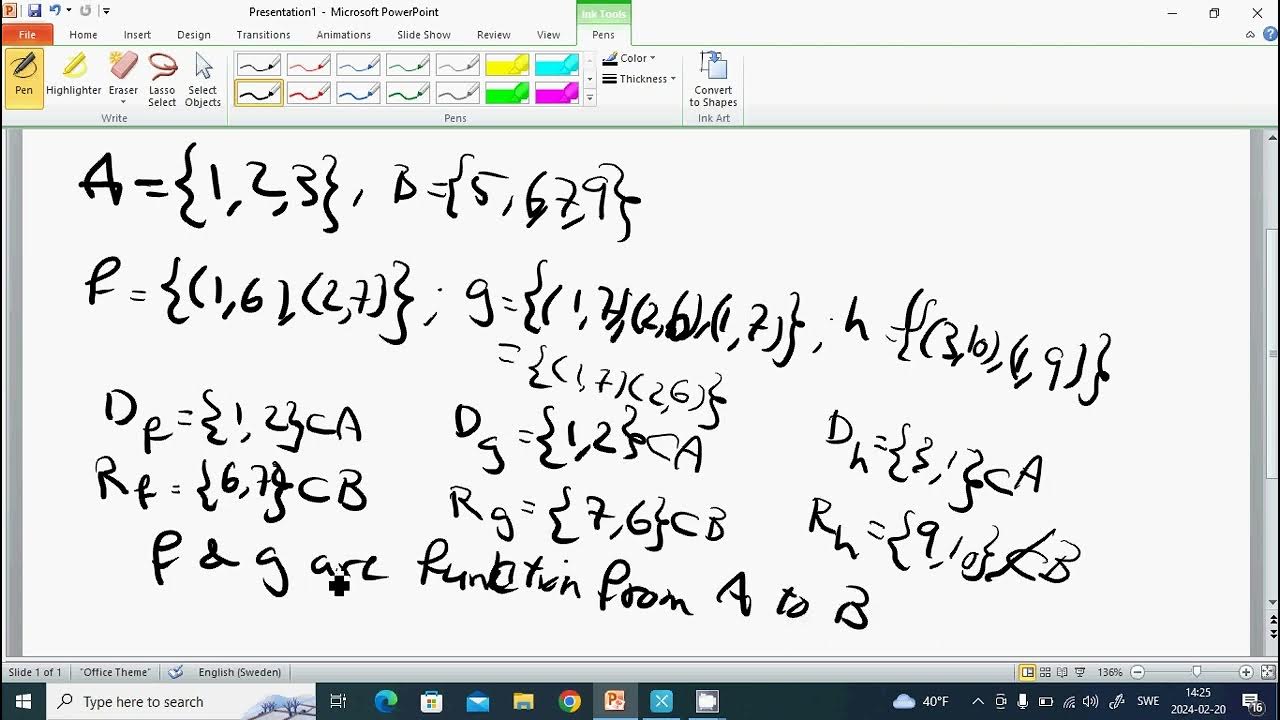 Presentation1 - Microsoft PowerPoint
Ink Tools
File Home Insert Design Transitions Animations Slide Show Review View Pens
Pen Highlighter Eraser Lasso Select Select Objects
Color Thickness
Convert to Shapes
Write Pens Ink Art
A = {1,2,3}, B = {5,6,7,9}
f = {(1,6),(2,7)}; g = {(1,7),(2,6),(1,7)}; h = {(3,10),(1,9)}
= {(1,7)(2,6)}
D_f = {1,2}⊂A D_g = {1,2}⊂A D_h = {3,1}⊂A
R_f = {6,7}⊂B R_g = {7,6}⊂B R_h = {9,10}⊄B
f & g are function from A to B
Slide 1 of 1 "Office Theme" English (Sweden) 136%
Type here to search 40°F SWE 14:25
2024-02-20 16